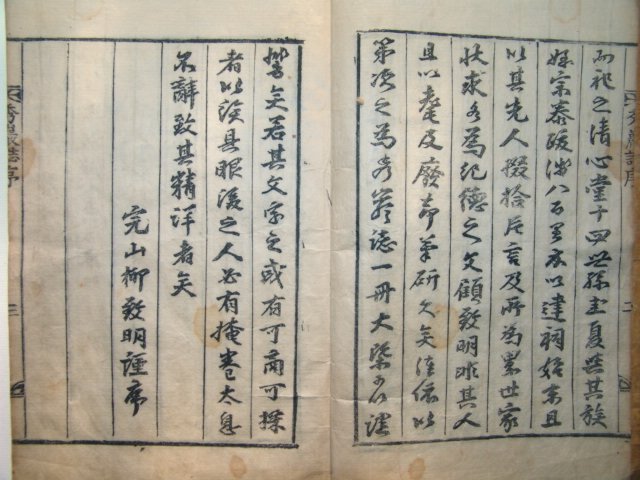 秀巖誌序
而祀之清心堂十四世孫圭夏與其族
姪宗泰跋涉八百里求以建祠始末且
以其先人掇拾片言及所為累世家
狀求為紀德之文顧致明非其人
且以耄及廢却筆研久矣依以
第次之為秀巖誌一冊大槩
勞矣若其文字之或有可商可採
者以俟具眼後之人必有掩卷太息
不辭致其精詳者矣
完山柳致明謹序
秀巖誌序
三